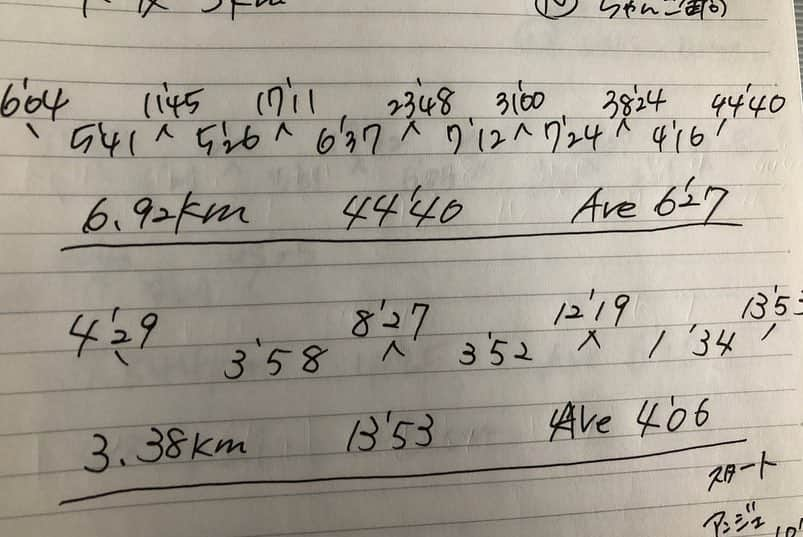 5km ちゃんこ部
6'04 11'45 17'11 23'48 31'00 38'24 44'40
5'41 5'26 6'37 7'12 7'24 4'16
6.92km 44'40 Ave 6'27
4'29 8'27 12'19 13'53
3'58 3'52 1'34
3.38km 13'53 Ave 4'06
スタート
アンジェ